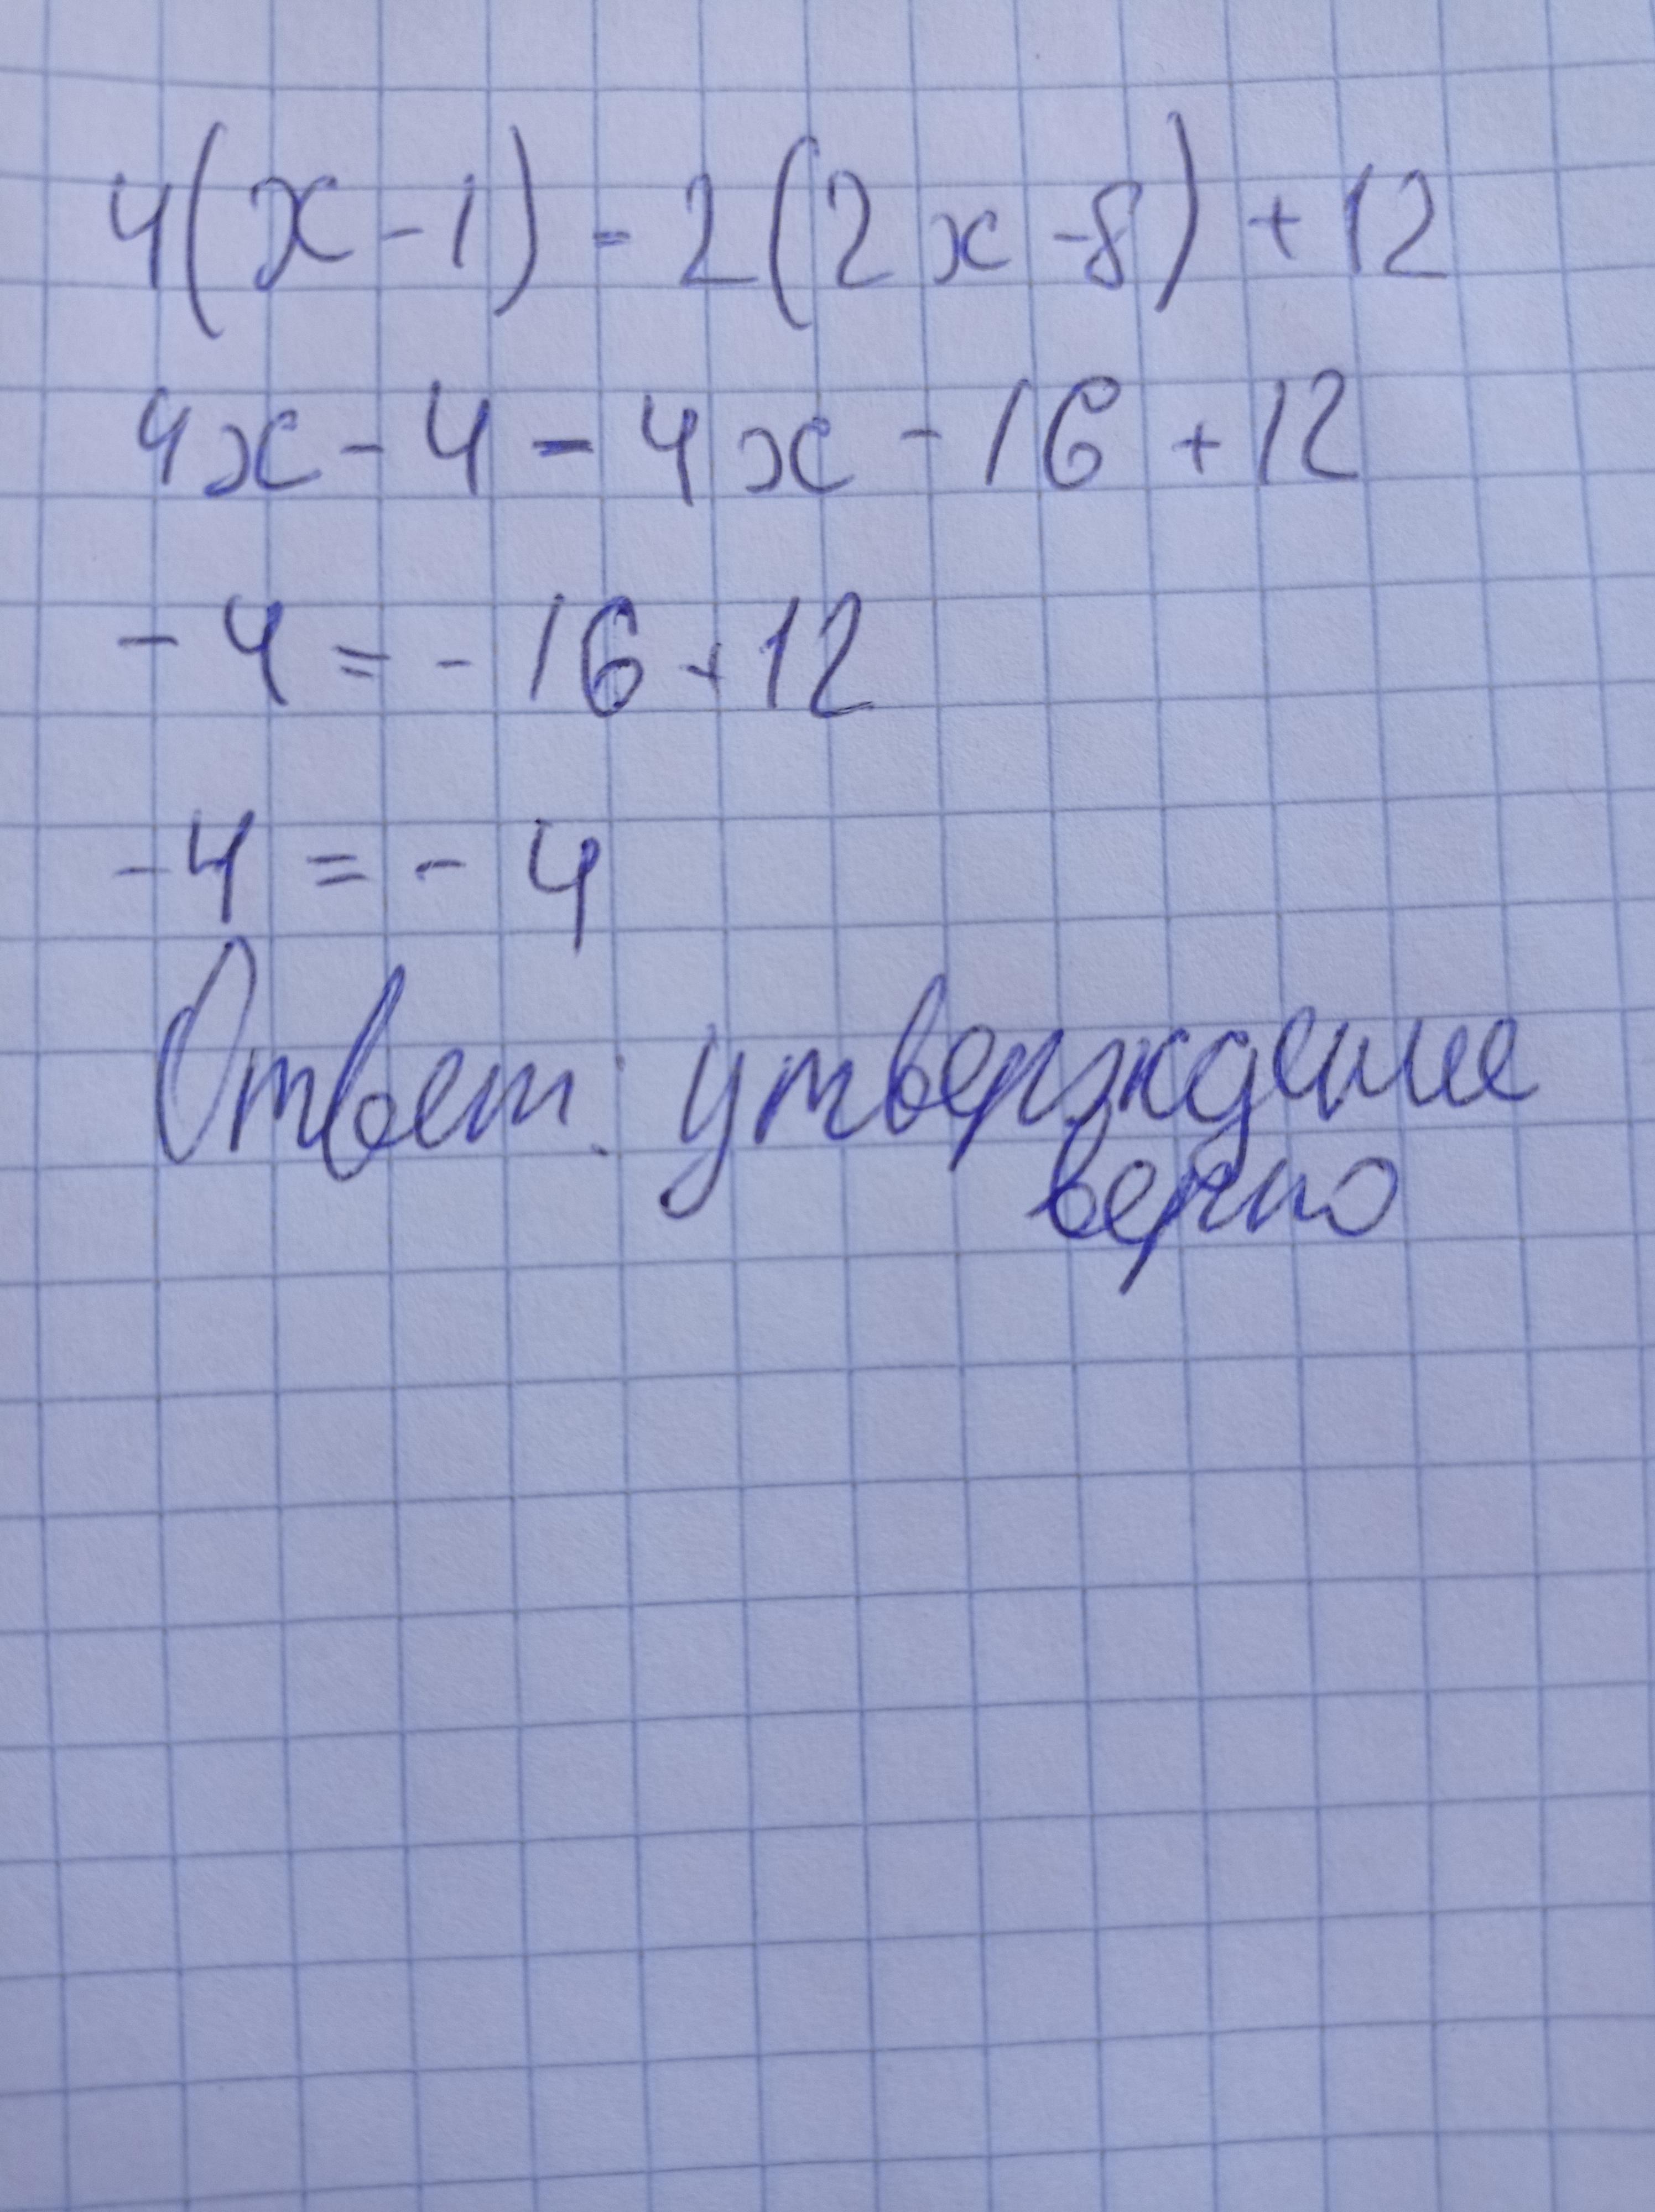 4(x-1)-2(2x-8)+12
4x-4-4x-16+12
-4=-16+12
-4=-4
Ответ: утверждение
верно